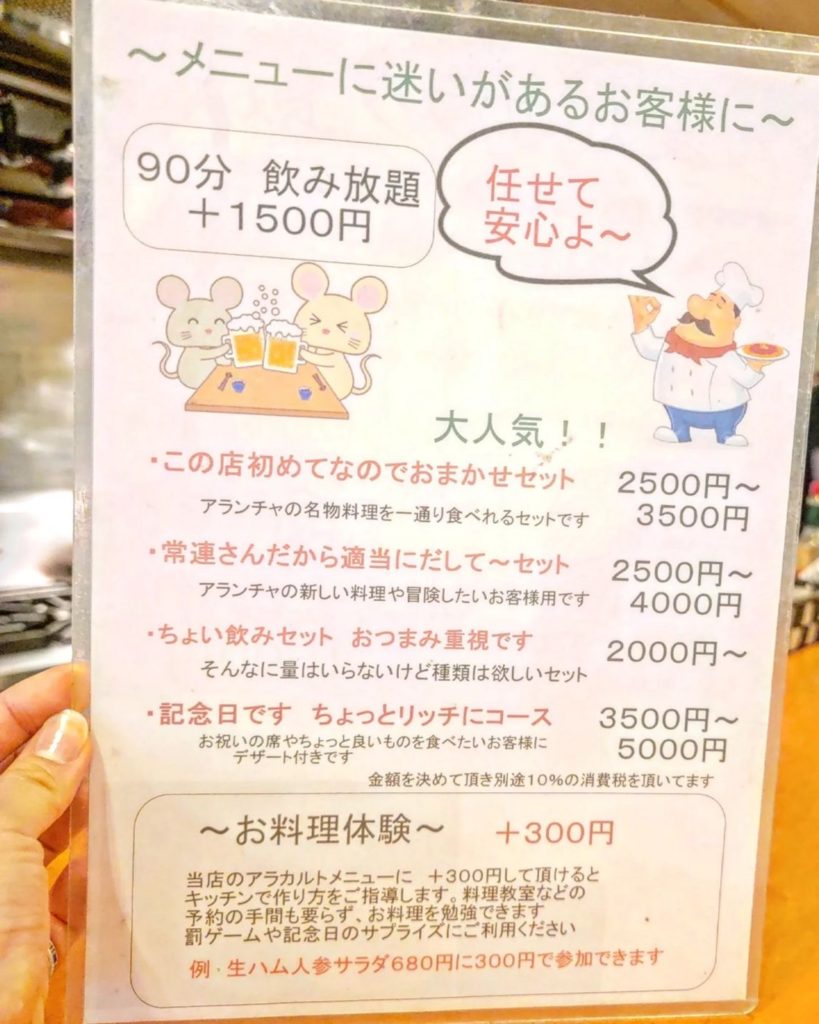 ～メニューに迷いがあるお客様に～
90分 飲み放題
＋1500円
任せて
安心よ～
大人気！！
・この店初めてなのでおまかせセット 2500円～
アランチャの名物料理を一通り食べれるセットです 3500円
・常連さんだから適当にだして～セット 2500円～
アランチャの新しい料理や冒険したいお客様用です 4000円
・ちょい飲みセット おつまみ重視です 2000円～
そんなに量はいらないけど種類は欲しいセット
・記念日です ちょっとリッチにコース 3500円～
お祝いの席やちょっと良いものを食べたいお客様に 5000円
デザート付きです
金額を決めて頂き別途10%の消費税を頂いてます
～お料理体験～ ＋300円
当店のアラカルトメニューに ＋300円して頂けると
キッチンで作り方をご指導します。料理教室などの
予約の手間も要らず、お料理を勉強できます
罰ゲームや記念日のサプライズにご利用ください
例 生ハム人参サラダ680円に300円で参加できます